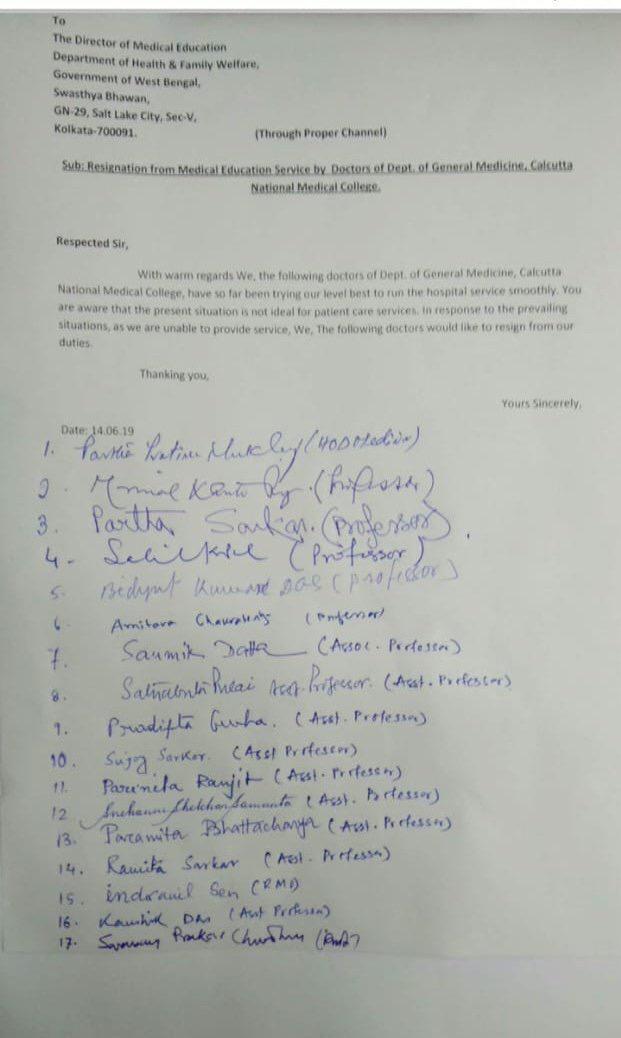 To
The Director of Medical Education
Department of Health & Family Welfare,
Government of West Bengal,
Swasthya Bhawan,
GN-29, Salt Lake City, Sec-V,
Kolkata-700091. (Through Proper Channel)
Sub: Resignation from Medical Education Service by Doctors of Dept. of General Medicine, Calcutta
National Medical College.
Respected Sir,
With warm regards We, the following doctors of Dept. of General Medicine, Calcutta
National Medical College, have so far been trying our level best to run the hospital service smoothly. You
are aware that the present situation is not ideal for patient care services. In response to the prevailing
situations, as we are unable to provide service, We, The following doctors would like to resign from our
duties.
Thanking you,
Yours Sincerely,
Date: 14.06.19
1. Partha (HOD Medicine)
2. (Professor)
3. Partha Sarkar. (Professor).
4. (Professor)
5. Bidyut Kumar Das (Professor)
6. (Professor)
7. Saumik Datta (Assoc. Professor)
8. Asst. Professor. (Asst. Professor)
9. Pradipta Guha. (Asst. Professor)
10. Sujoy Sarkar. (Asst Professor)
11. Ranjit (Asst. Professor)
12 Samanta (Asst. Professor)
13. Paramita Bhattacharya (Asst. Professor)
14. Ramita Sarkar (Asst. Professor)
15. Indranil Sen (RMO)
16. Kaushik Das (Asst Professor)
17.